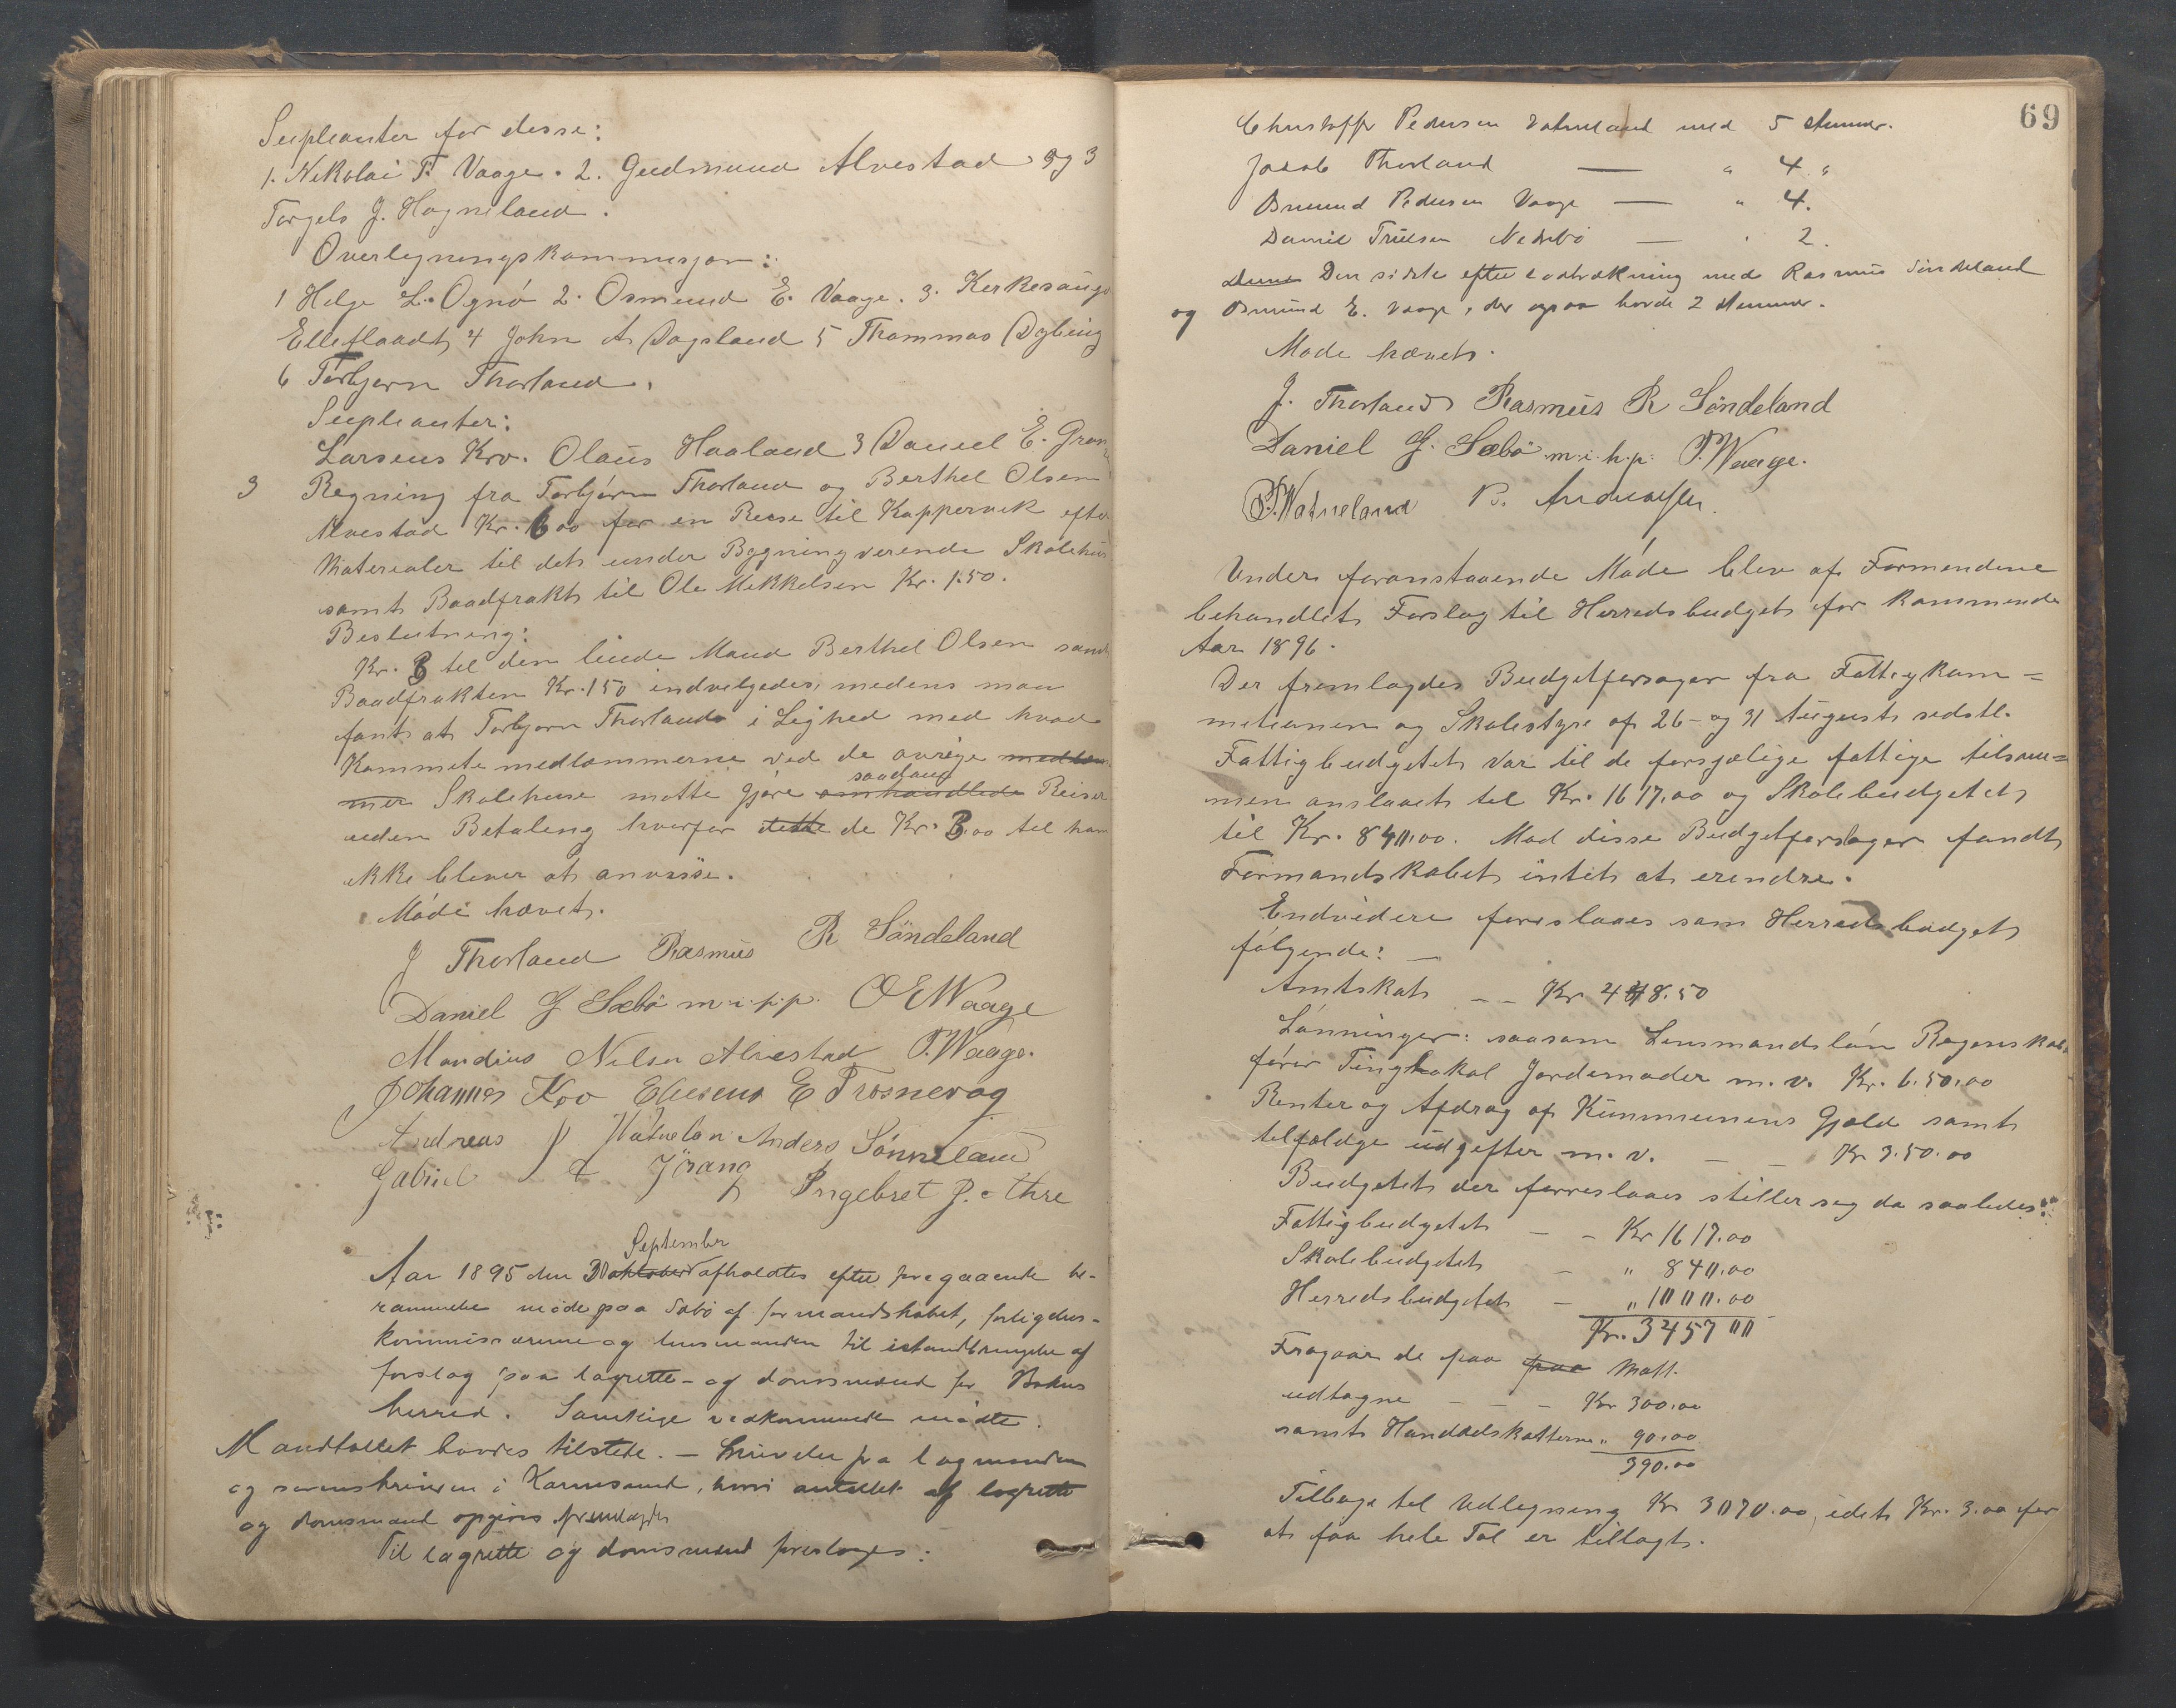 Supleanter for desse:
1. Nikolai T. Vaage. 2. Gudmund Alvestad og 3
Torgels J. Hagneland.
Overlegningskommisjon:
1 Helge L. Ognø 2. Osmund E. Vaage. 3. Kerkesanger
Elleflaadt, 4 John A Dagsland 5 Thommas Døbing
6 Torbjørn Thorland.
Supleanter:
Larseus Kro. Olaus Haaland 3 Daniel E. Grøn
3 Regning fra Torbjørn Thorland og Berthel Olsen
Alvestad Kr. 6 00 for en Reise til Koppervik efter
Materialer til det under Bygning verende Skolehus
samt Baadfrakt til Ole Mikkelsen Kr. 1.50.
Beslutning:
Kr. 3 til den leiede Mand Berthel Olsen samt
Baadfrakten Kr. 1 50 indvilgedes, medens man
fant at Torbjørn Thorland i Lighed med hvad
Kommetemedlammerne ved de øvrige medlem
mer Skolehuse motte gjøre omhandlede saadane Reiser
uden Betaling hvorfor dette de Kr. 3.00 til ham
ikke bliver at anvise.
Møde hævet.
J Thorland Rasmus R Søndeland
Daniel G Sæbø m.i.p.p. O E Waage
Mandius Nilsen Alvestad P. Waage.
Johannes Kro Eliseus E Trosnevag
Andreas P Watneland Anders Sønneland
Gabriel Jörang Ingebret P. Økre
Aar 1895 den 30 oktober September afholdtes efter pregaaende be-
rammelse møde paa Sæbø af formandskabet, forligelses-
kommissærerne og lensmanden til istandbringelse af
forslag paa lagrette- og domsmænd for Bokns
herred. Samtlige vedkommende mødte.
Mandtallet havdes tilstede. – Skrivelse fra lagmanden
og sorenskriveren i Karmsund, hvori antallet af lagrette
og domsmænd opgives fremlagdes
Til lagrette og domsmænd foreslaaes:
69
Christoffer Pedersen Vatneland med 5 stemmer.
Jakob Thorland — " 4 "
Osmund Pedersen Vaage — " 4.
Daniel Trulsen Nedrebø — " 2.
Den sidste efter lodtrækning med Rasmus Sindeland
og Osmund E. Vaage, der ogsaa havde 2 stemmer.
Møde hævet.
J. Thorland Rasmus R Söndeland
Daniel G. Sæbø m.i.h.p. P. Waage.
P. Watneland
Under foranstaaende Møde blev af Formendene
behandlet Forslag til Herredsbudget for kommende
Aar 1896.
Der fremlagdes Budgetforsager fra Fattigkom=
metionen og Skolestyre af 26- og 31 August sidstl.
Fattigbudgetet var til de forsjælige fattige tilsam=
men anslaaet til Kr. 1617.00 og Skolebudgetet
til Kr. 840.00. Mod disse Budgetforslager fandt
Formandskabet intet at erendre.
Endvidere foreslaaes som Herredsbudget
følgende: —
Amtskat – – Kr 448.50
Lønninger: saasom Lensmandsløn Regnskabs
fører Tinglokal Jordemoder m.v. Kr. 6.50.00
Renter og Afdrag af Kummunens Gjæld samt
telfældge udgefter m.v. – – Kr 3.50.00
Budgetet der forreslaaes stiller seg da saaledes:
Fattigbudgetet – – Kr 1617.00
Skolebudgetet – " 840.00
Herredsbudgetet – " 1000.00
Kr. 3457 00
Fragaar de paa paa Matt.
udtagne – – – Kr 300.00
samt Hundedskatterne " 90.00
390.00
Tilbage til Udlegning Kr 3070.00, idet Kr. 3.00 for
at faa hele Tal er tillagt.